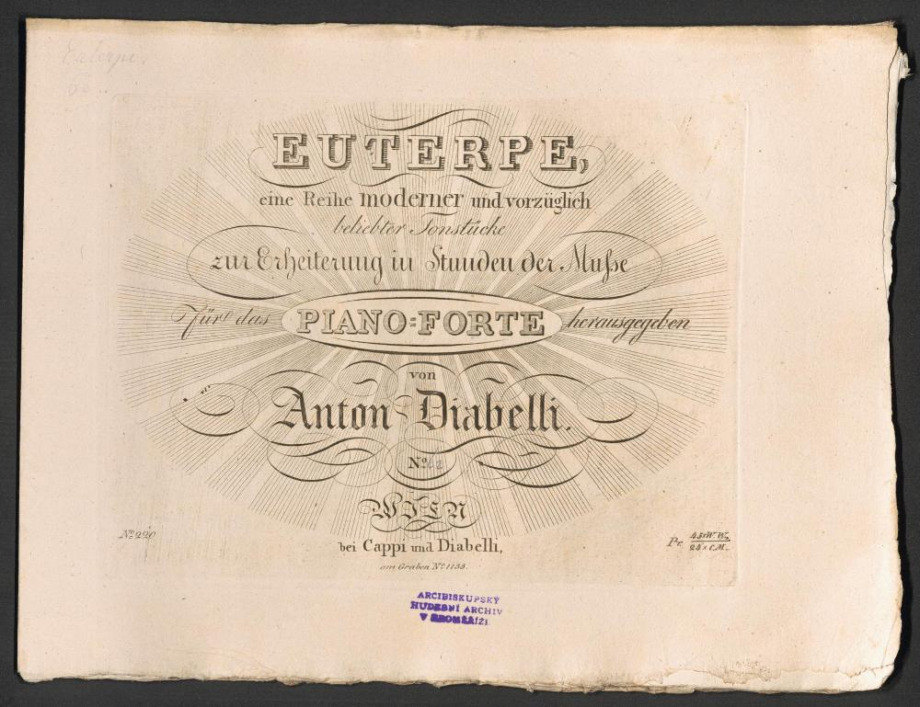 Euterpe
EUTERPE,
eine Reihe moderner und vorzüglich
beliebter Tonstücke
zur Erheiterung in Stunden der Muſse
Für das PIANO=FORTE herausgegeben
von
Anton Diabelli.
No.
WIEN
No. 220
bei Cappi und Diabelli,
am Graben No. 1133.
Pr. 45 x W.W.
24 x C.M.
ARCIBISKUPSKÝ
HUDEBNÍ ARCHIV
V KROMĚŘÍŽI